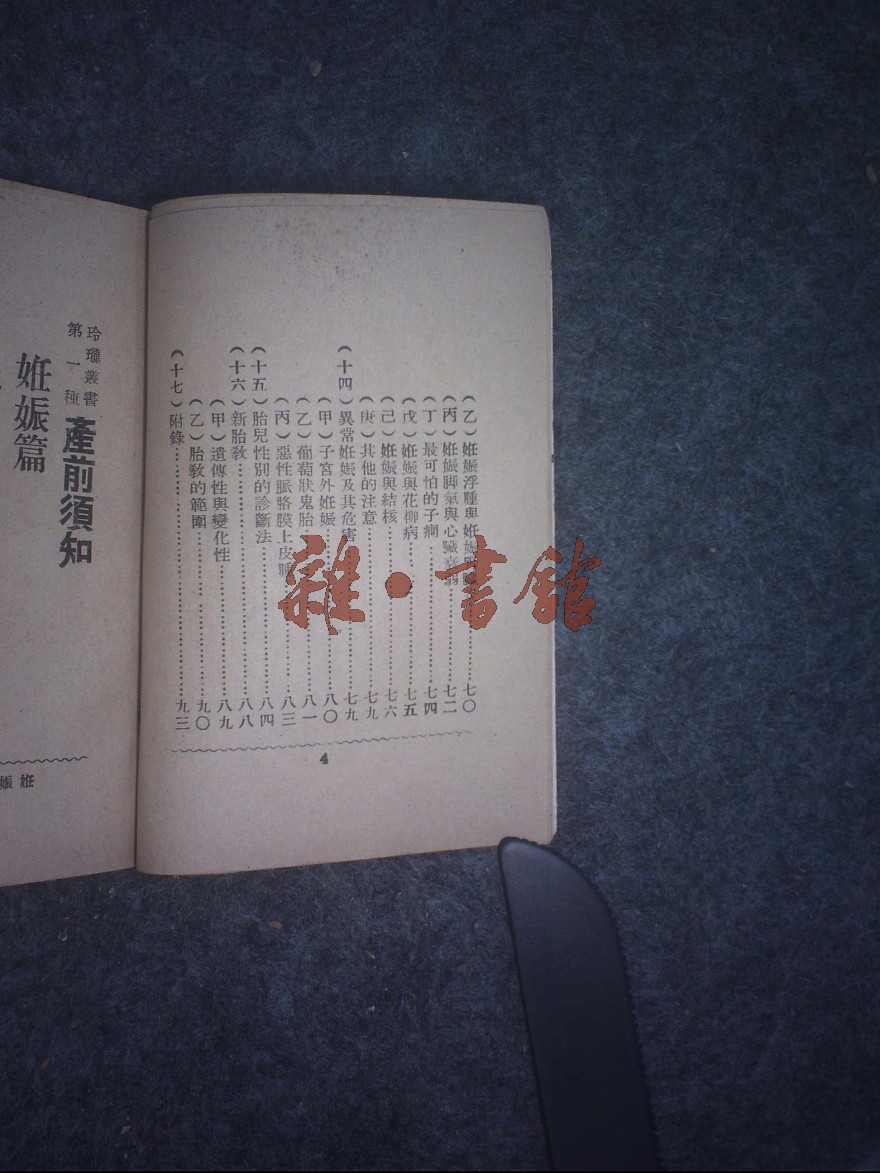 （乙）妊娠浮腫與妊娠……七〇
（丙）妊娠脚氣與心臟衰弱……七二
（丁）最可怕的子癇……七四
（戊）妊娠與花柳病……七五
（己）妊娠與結核……七六
（庚）其他的注意……七九
（十四）異常妊娠及其危害……七九
（甲）子宮外妊娠……八〇
（乙）葡萄狀鬼胎……八一
（丙）惡性脈胳膜上皮腫……八三
（十五）胎兒性別的診斷法……八四
（十六）新胎敎……八八
（甲）遺傳性與變化性……八九
（乙）胎敎的範圍……九〇
（十七）附錄……九三
4
玲瓏叢書
第一種
產前須知
妊娠篇
妊娠
雜·書館